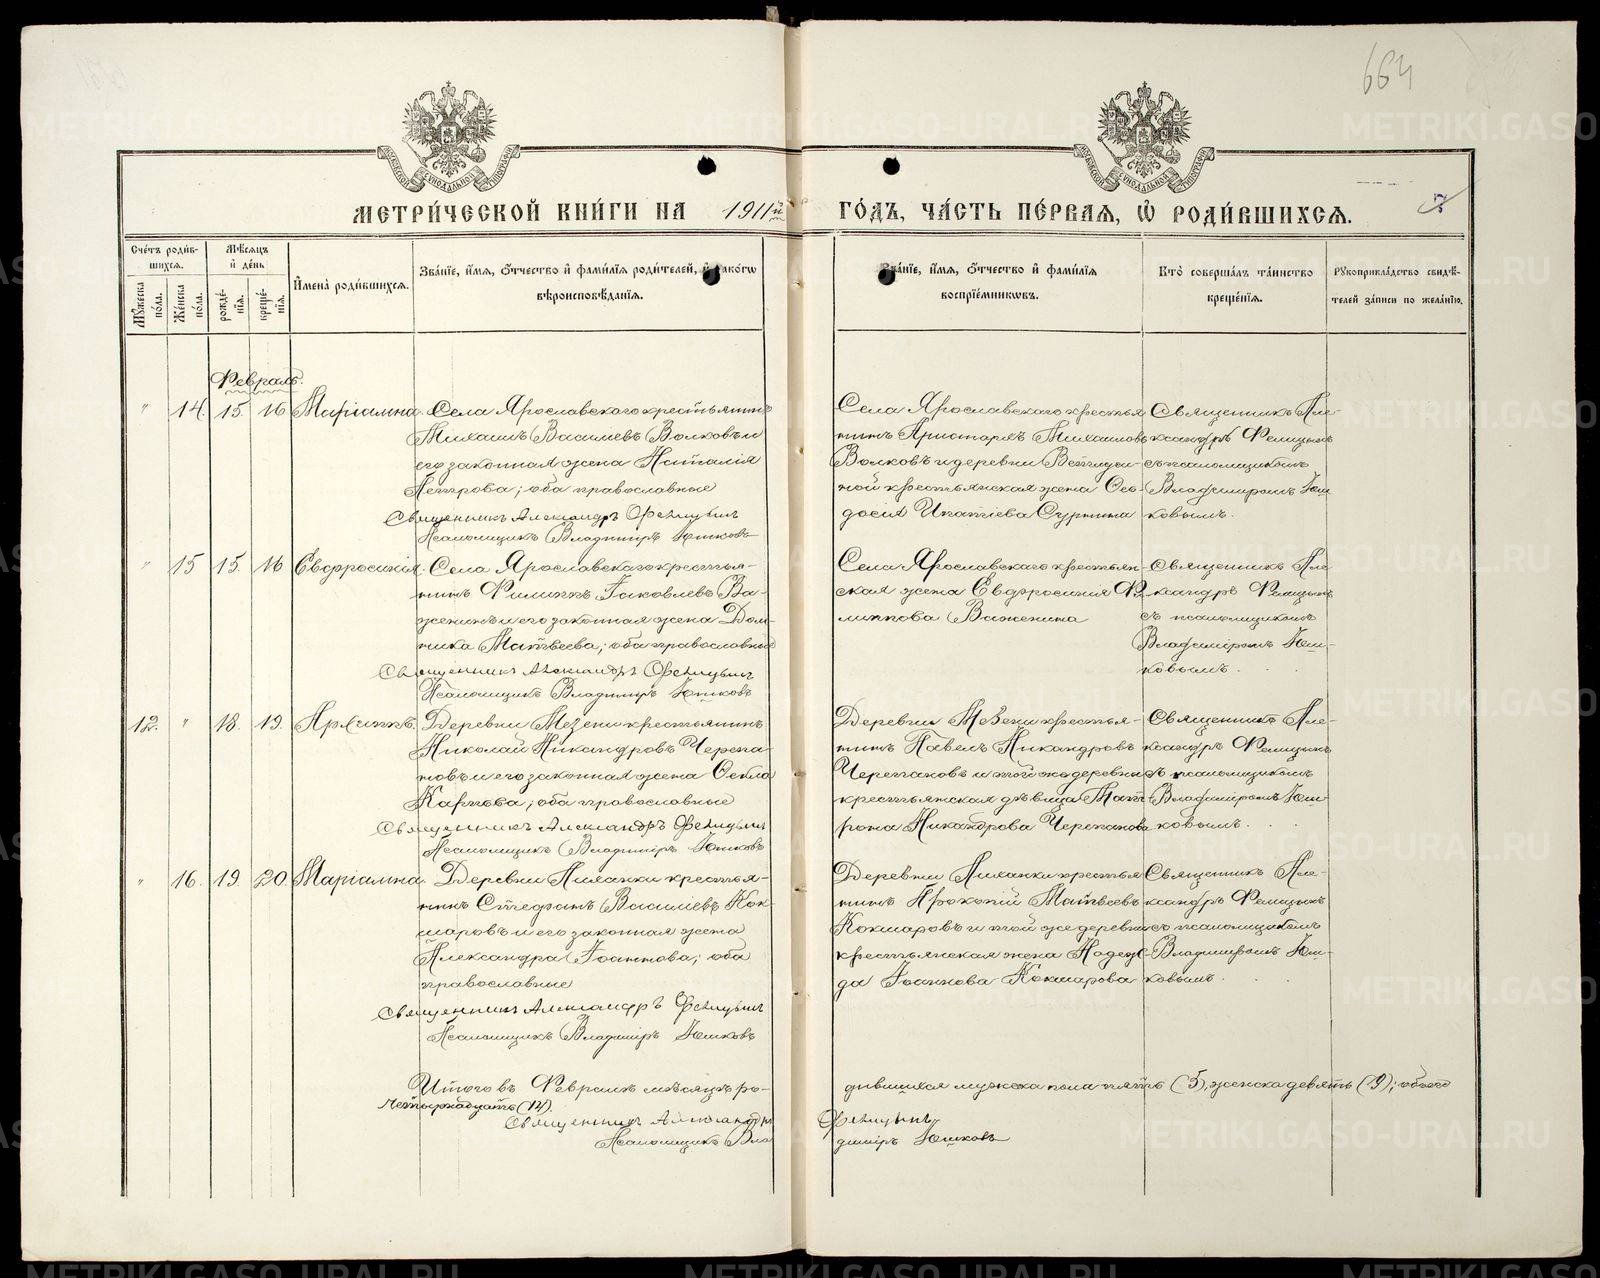 664
МЕТРИ́ЧЕСКОЙ КНИ́ГИ НА 1911й ГО́ДЪ, ЧА́СТЬ ПЕ́РВАЯ, Ѡ РОДИ́ВШИХСЯ.
Сче́тъ роди́в-
шихся.
Му́жеска по́ла.
Же́нска по́ла.
Мѣ́сяцъ
и де́нь
рожде́-
нїя.
креще́-
нїя.
Имена̀ роди́вшихся.
Зва́нїе, и́мя, о́тчество и фами́лїя роди́телей, и како́гѡ
вѣроисповѣ́данїя.
Зва́нїе, и́мя, о́тчество и фами́лїя
воспрїе́мникѡвъ.
Кто̀ соверша́лъ та́инство
креще́нїя.
Рукоприкла́дство свидѣ́-
телей за́писи по жела́нїю.
Февраль.
" 14. 15. 16 Маріамна.
Села Ярославскаго крестьянинъ
Михаилъ Васильевъ Волковъ и
его законная жена Наталія
Петрова; оба православные
Священникъ Александръ Фелицынъ
Псаломщикъ Владиміръ Юшковъ
Села Ярославскаго крестья-
нинъ Аристархъ Михаиловъ
Волковъ и деревни
ной крестьянская жена Ев-
докія Ипатіева Сурнина
Священникъ Але-
ксандръ Фелицынъ
съ псаломщикомъ
Владиміромъ Юш-
ковымъ.
" 15 15. 16 Евфросинія.
Села Ярославскаго крестья-
нинъ Филиппъ Іаковлевъ Ва-
женинъ и его законная жена Дом-
ника Матвеева; оба православные
Священникъ Александръ Фелицынъ
Псаломщикъ Владиміръ Юшковъ
Села Ярославскаго крестьян-
ская жена Евфросинія Фи-
липпова Важенина
Священникъ Але-
ксандръ Фелицынъ
съ псаломщикомъ
Владиміромъ Юш-
ковымъ.
12. " 18. 19. Архиппъ.
Деревни Мезени крестьянинъ
Николай Никандровъ Черепа-
новъ и его законная жена Ѳекла
Карпова; оба православные
Священникъ Александръ Фелицынъ
Псаломщикъ Владиміръ Юшковъ
Деревни Мезени крестья-
нинъ Павелъ Никандровъ
Черепановъ и той же деревни
крестьянская дѣвица Мат-
рона Никандрова Черепанова
Священникъ Але-
ксандръ Фелицынъ
съ псаломщикомъ
Владиміромъ Юш-
ковымъ.
" 16. 19. 20 Маріамна.
Деревни Пиханки крестья-
нинъ Стефанъ Васильевъ Кок-
шаровъ и его законная жена
Александра Іоаннова; оба
православные
Священникъ Александръ Фелицынъ
Псаломщикъ Владиміръ Юшковъ
Деревни Пиханки крестья-
нинъ Прокопій Матвеевъ
Кокшаровъ и той же деревни
крестьянская жена Надеж-
да Іоаннова Кокшарова
Священникъ Але-
ксандръ Фелицынъ
съ псаломщикомъ
Владиміромъ Юш-
ковымъ.
Итого въ Февралѣ мѣсяцѣ ро-дившихся мужеска пола пять (5), женска девять (9); обоего
четырнадцать (14).
Священникъ Александръ Фелицынъ
Псаломщикъ Владиміръ Юшковъ